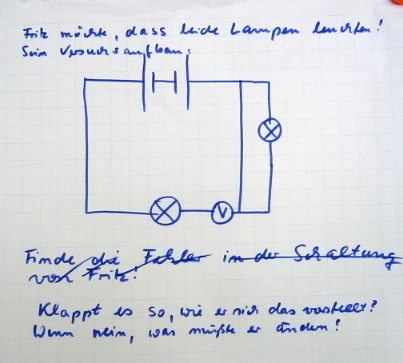 Fritz möchte, dass beide Lampen leuchten!
Sein Versuchsaufbau:
V
Finde die Fehler in der Schaltung
von Fritz!
Klappt es so, wie er sich das vorstellt?
Wenn nein, was müßte er ändern?